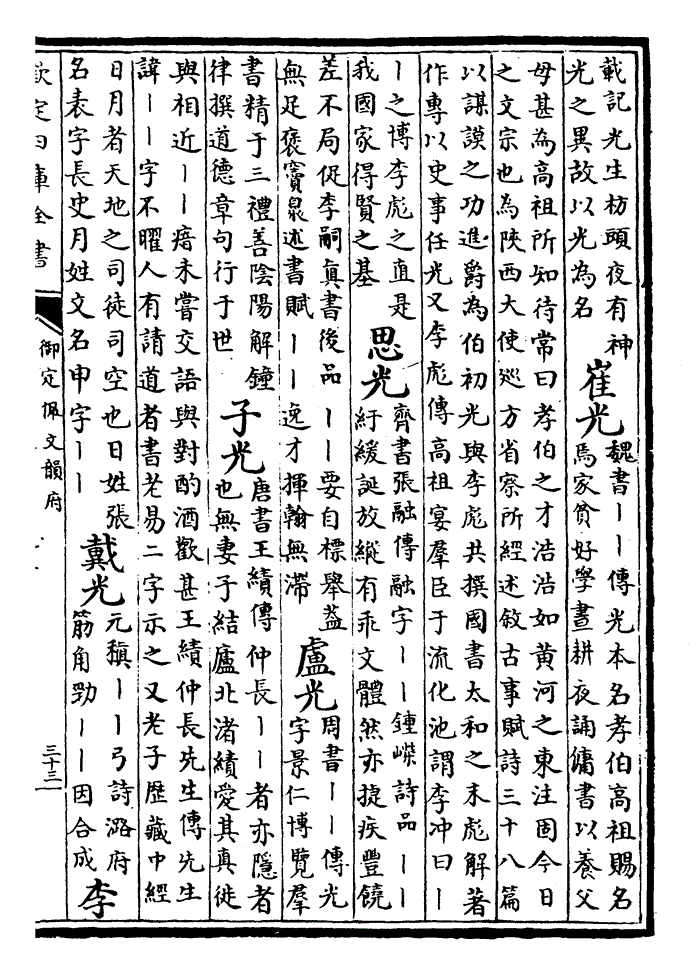 載記光生枋頭夜有神
光之異故以光為名
崔光
魏書丨丨傳光本名孝伯高祖賜名
焉家貧好學晝耕夜誦傭書以養父
母甚為高祖所知待常曰孝伯之才浩浩如黃河之東注固今日
之文宗也為陝西大使巡方省察所經述敘古事賦詩三十八篇
以謀謨之功進爵為伯初光與李彪共撰國書太和之末彪解著
作專以史事任光又李彪傳高祖宴羣臣于流化池謂李冲曰丨
丨之博李彪之直是
我國家得賢之基
思光
齊書張融傳融字丨丨鍾嶸詩品丨丨
紆緩誕放縱有乖文體然亦捷疾豐饒
差不局促李嗣真書後品丨丨要自標舉益
無足褒竇臮述書賦丨丨逸才揮翰無滯
盧光
周書丨丨傳光
字景仁博覽羣
書精于三禮善陰陽解鐘
律撰道德章句行于世
子光
唐書王績傳仲長丨丨者亦隱者
也無妻子結廬北渚績愛其真徙
與相近丨丨瘖未嘗交語與對酌酒歡甚王績仲長先生傳先生
諱丨丨字不曜人有請道者書老易二字示之又老子歷藏中經
日月者天地之司徒司空也日姓張
名表字長史月姓文名申字丨丨
戴光
元稹丨丨弓詩潞府
筋角勁丨丨因合成
李
欽定四庫全書
御定佩文韻府
三十三